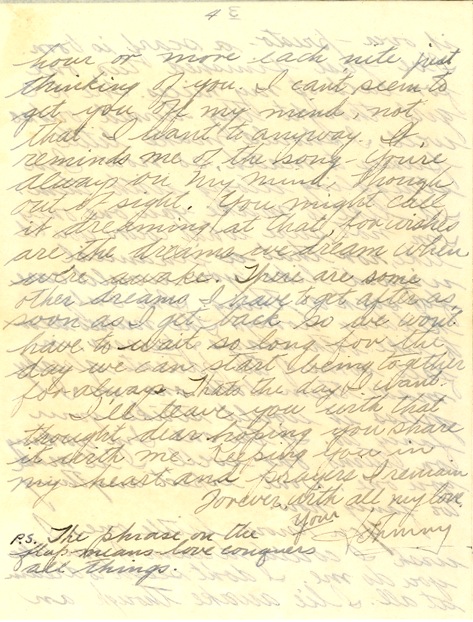 4 3
hour or more each nite just
thinking of you. I can't seem to
get you off my mind, not
that I want to anyway. It
reminds me of the song - You're
always on my mind, though
out of sight. You might call
it dreaming at that, for wishes
are the dreams we dream when
we're awake. There are some
other dreams I have to get after as
soon as I get back so we won't
have to wait so long for the
day we can start being together
for always. Thats the day I want.
I'll leave you with that
thought dear hoping you share
it with me. Keeping you in
my heart and prayers I remain
Forever, with all my love,
Your
Johnny
P.S. The phrase on the
flap means love conquers
all things.